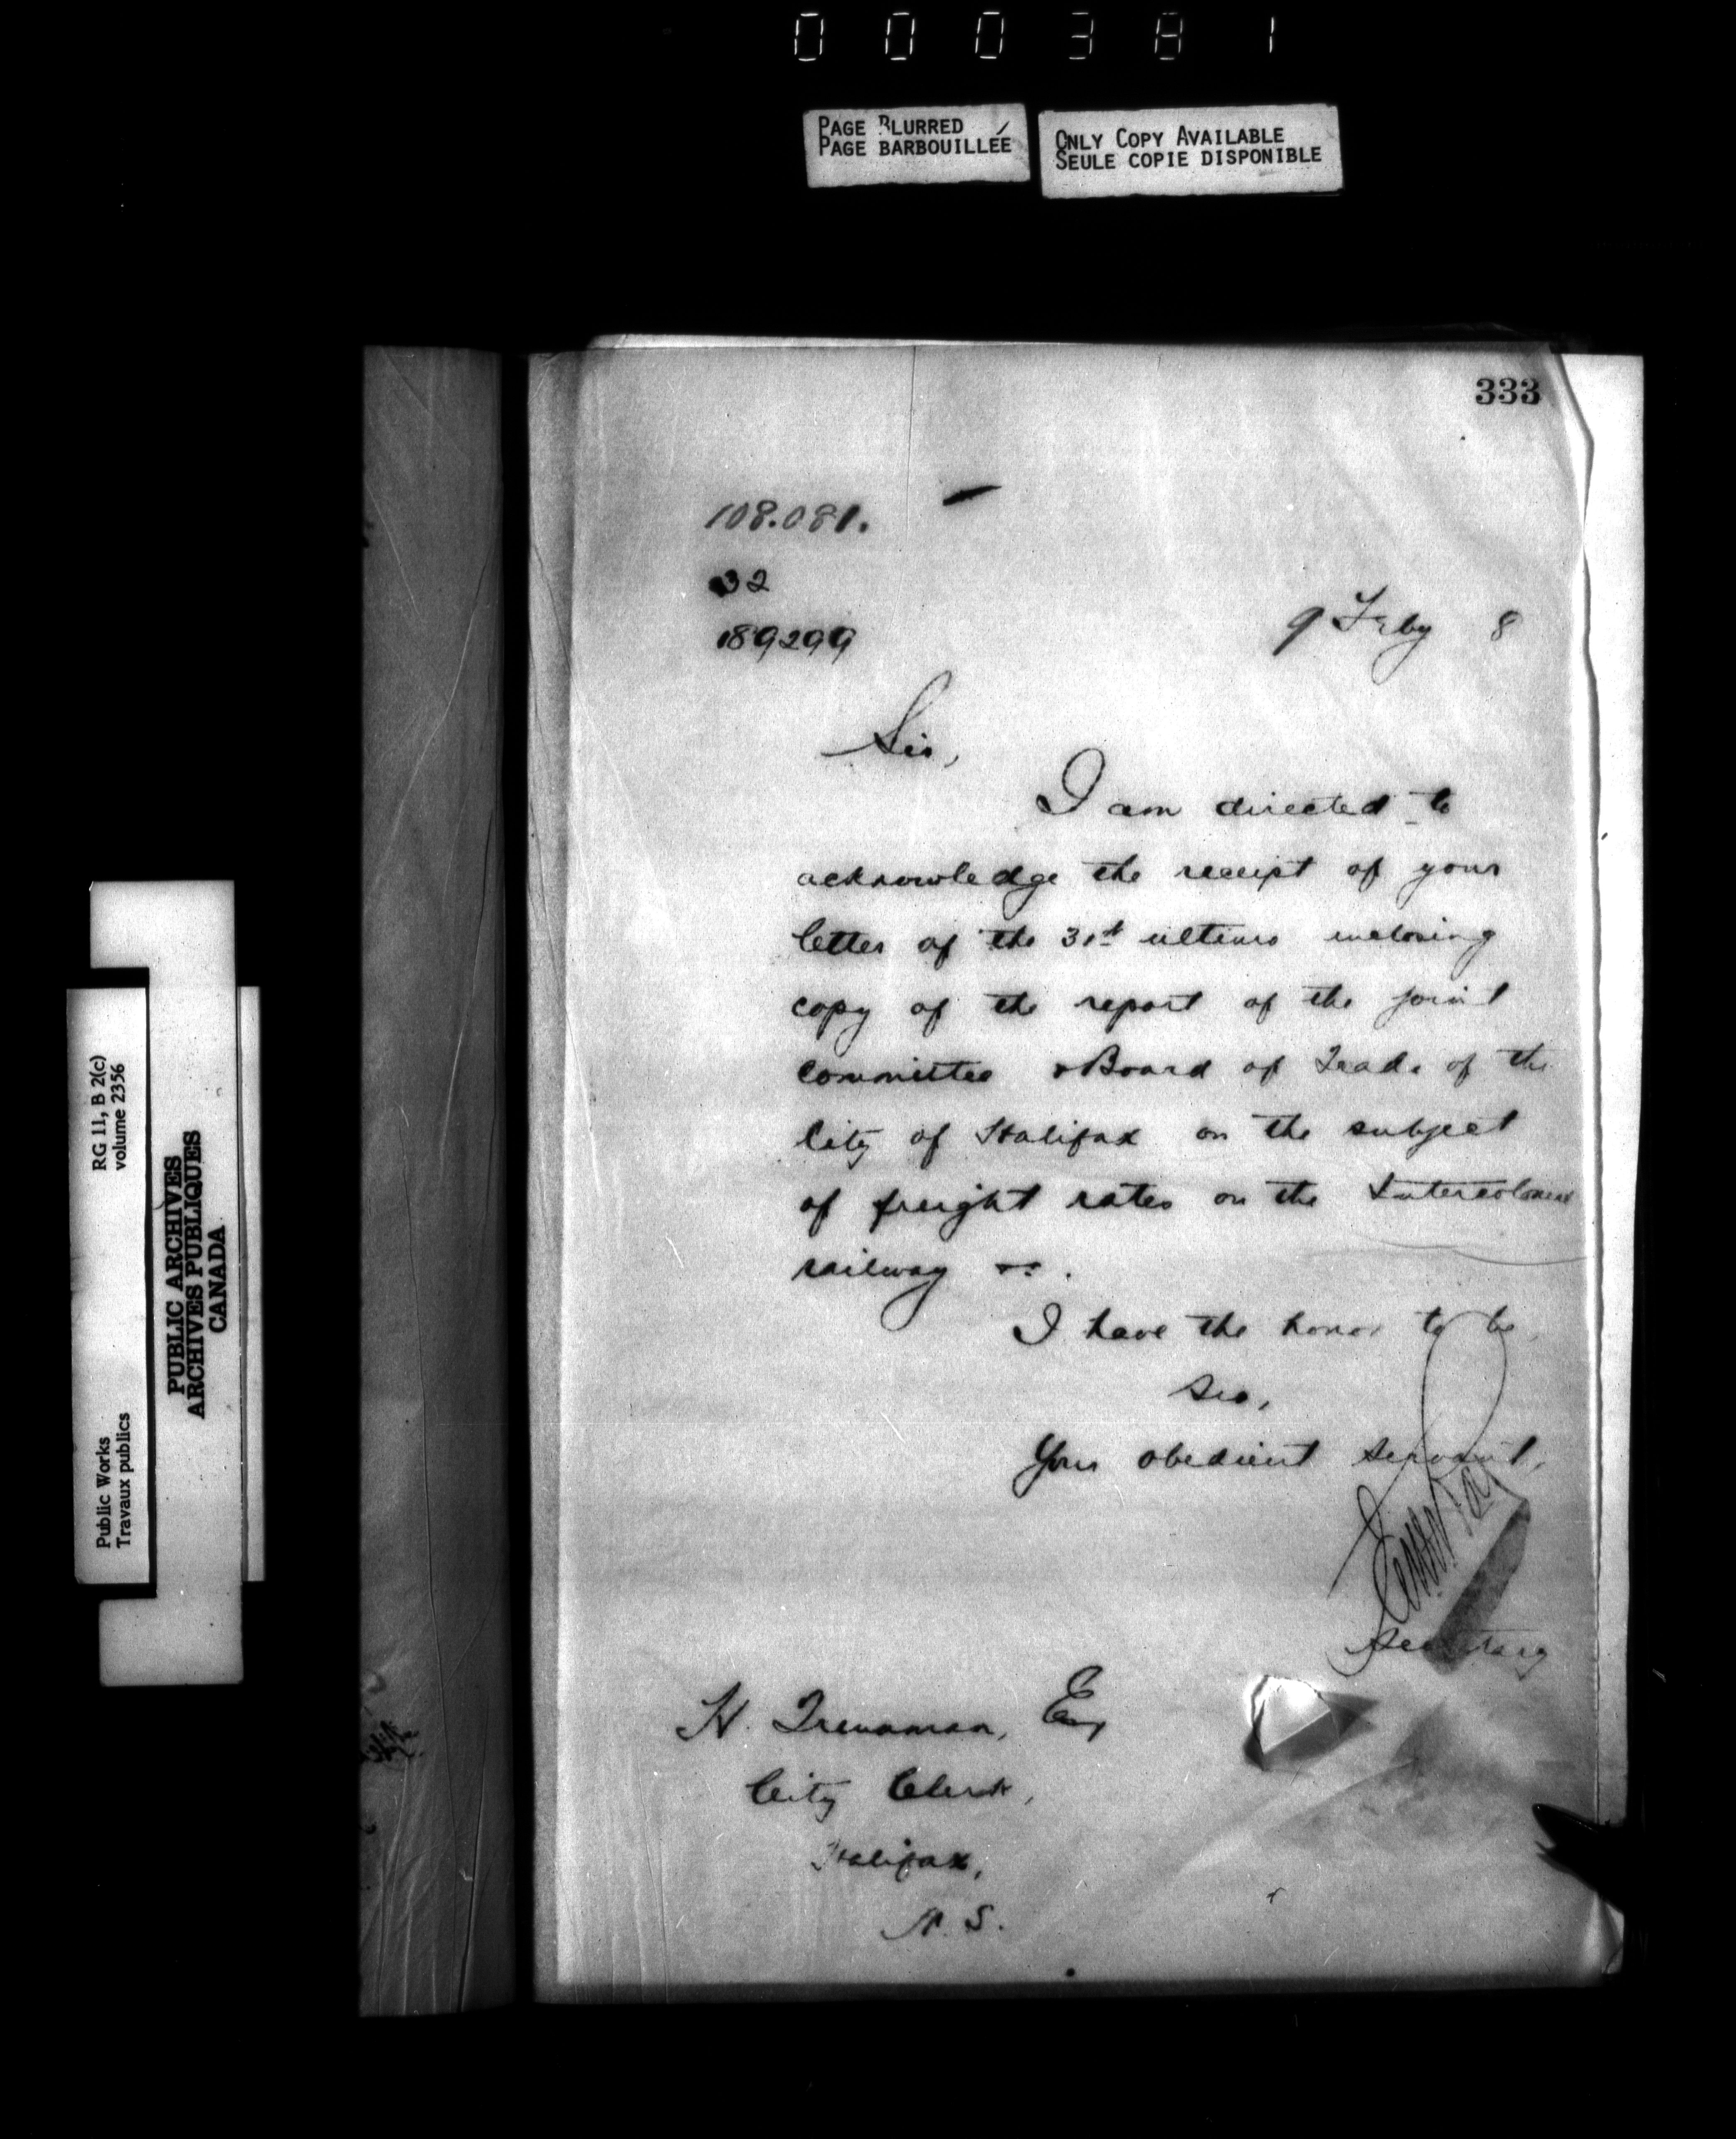 000381
PAGE BLURRED
PAGE BARBOUILLÉE
ONLY COPY AVAILABLE
SEULE COPIE DISPONIBLE
333
108.081.
32
189299
9 Feby 8
Sir,
I am directed to
acknowledge the receipt of your
letter of the 31st ultimo inclosing
copy of the report of the joint
committee & Board of Trade of the
City of Halifax on the subject
of freight rates on the Intercolonial
railway &c.
I have the honor to be,
Sir,
Your obedient servant,
Secretary
H. Trenaman, Esq
City Clerk,
Halifax,
N. S.
RG 11, B 2(c)
volume 2356
Public Works
Travaux publics
PUBLIC ARCHIVES
ARCHIVES PUBLIQUES
CANADA